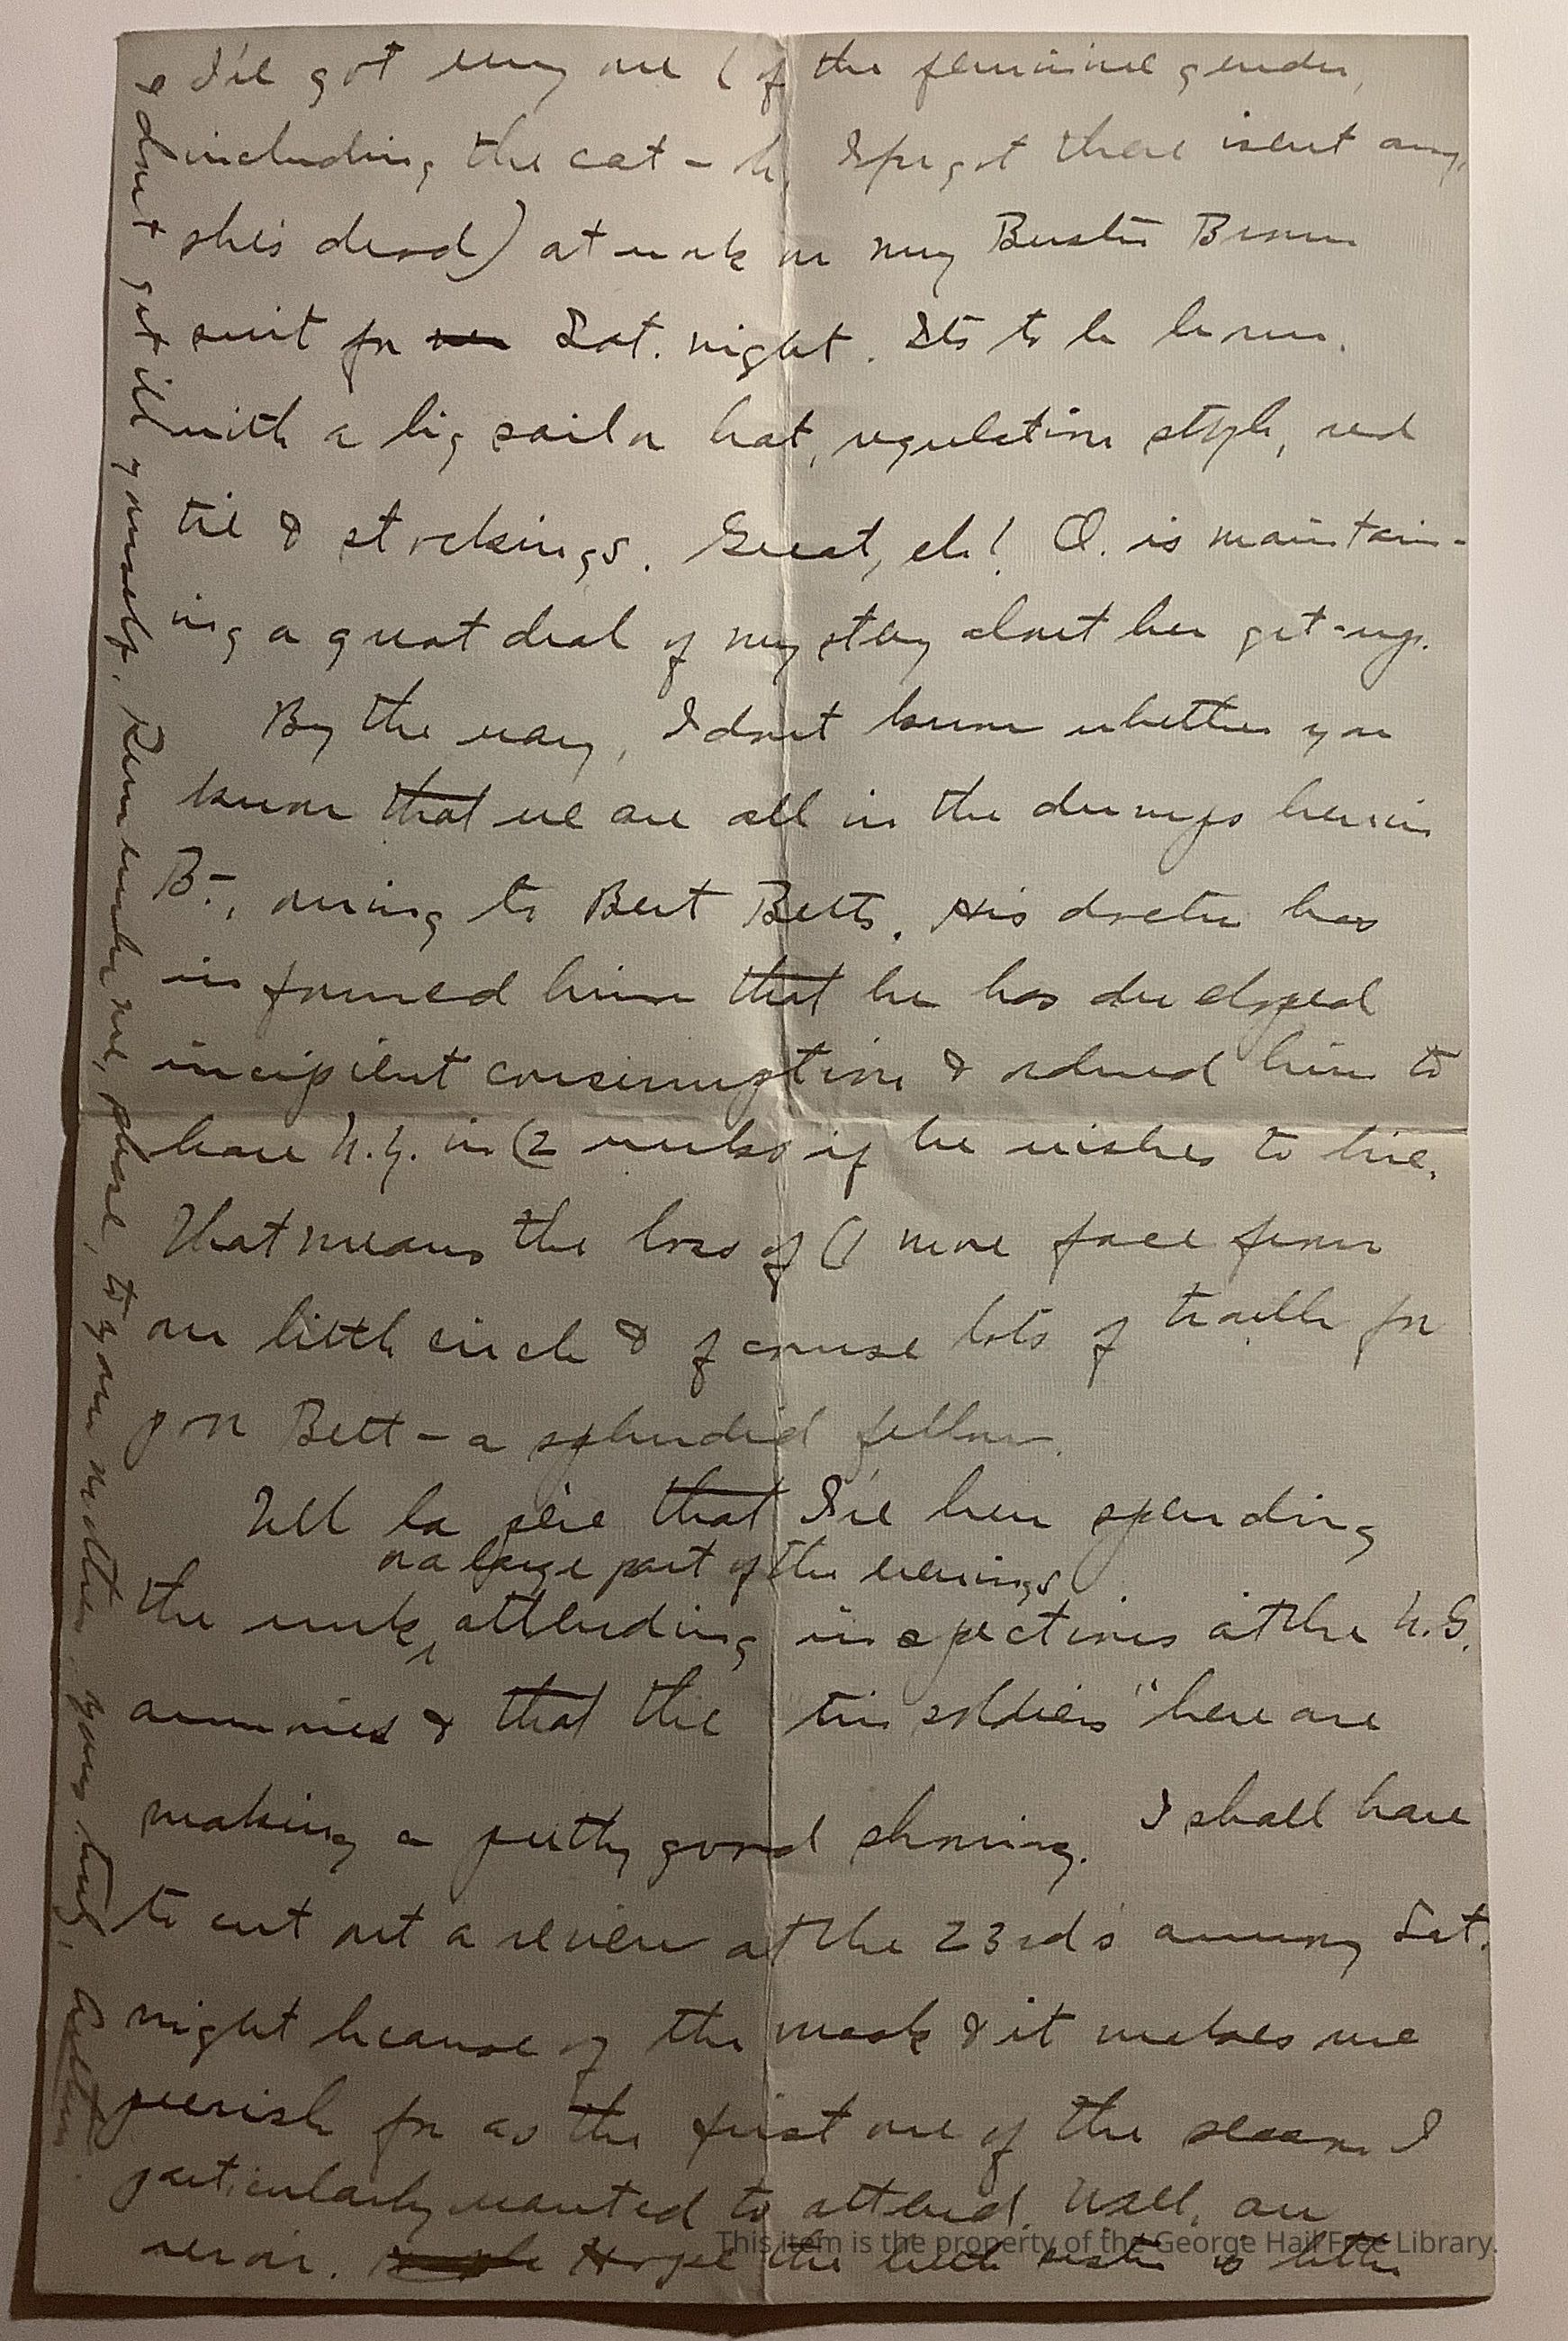 I've got every one (of the feminine gender,
including the cat - no, I forgot there isent any,
she's dead) at work on my Buster Brown
suit for Sat. night. Its to be brown.
with a big sailor hat, regulation style, red
tie & stockings. Great, eh! O. is maintain-
ing a great deal of mystery about her get-up.
By the way, I don't know whether you
know that we are all in the dumps here in
B-., owing to Bert Betts. His doctor has
informed him that he has developed
incipient consumption & ordered him to
leave N.Y. in (2 weeks if he wishes to live.
That means the loss of (1 more face from
our little circle & of course lots of trouble for
poor Bett - a splendid fellow.
Tell la père that I've been spending
or a large part of the evenings
the week, attending inspections at the N.G.
armories & that the "tin soldiers" here are
making a pretty good showing. I shall have
to cut out a review at the 23rd's armory Sat.
night because of the mask & it makes me
peevish for as the first one of the season I
particularly wanted to attend. Well, au
revoir. Hope the little sister is better
& don't get ill yourself. Remember me, please, to your mother. Yours truly,
This item is the property of the George Hail Free Library.